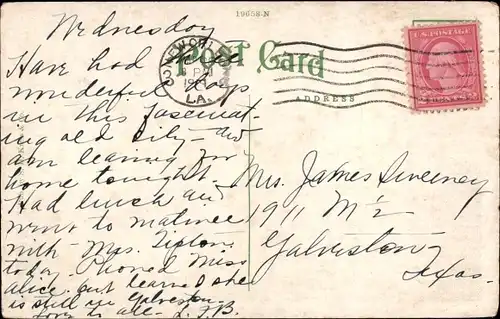 19658-N
Post Card
ADDRESS
U.S. POSTAGE
NEW OR
LA.
Wednesday
Have had
wonderful days
in this fascinat-
ing old City - and
am leaving for
home tonight.
Had lunch and
went to matinee
with Mrs. Tipton
today. Phoned Miss
Alice, but learned she
is still in Galveston.
Love to all - L.F.B.
Mrs. James Sweeney
1911 M½
Galveston
Texas.